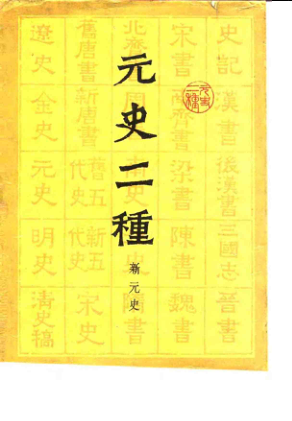 元史二種
新元史
史記
漢書
後漢書
三國志
晉書
宋書
南齊書
梁書
陳書
魏書
南史
舊唐書
新唐書
舊五代史
新五代史
宋史
遼史
金史
元史
明史
清史稿
元史二種